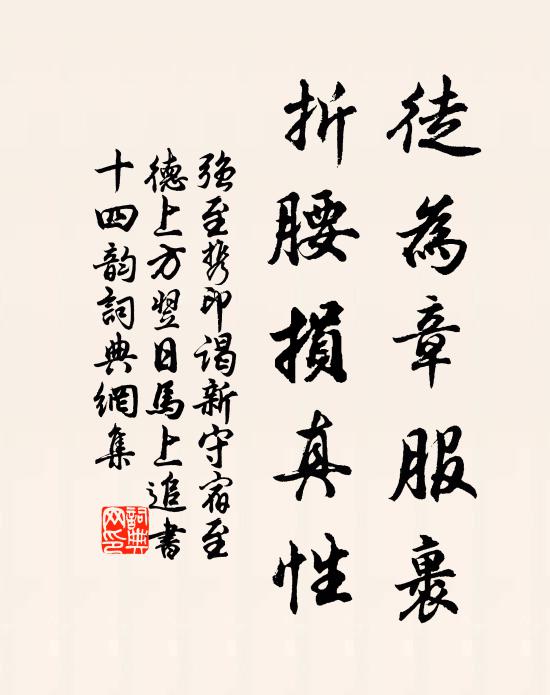 徒為章服裹
折腰損真性
强至携印谒新守宿至
德上方翌日馬上追書
十四韵詞典網集
詞典網印